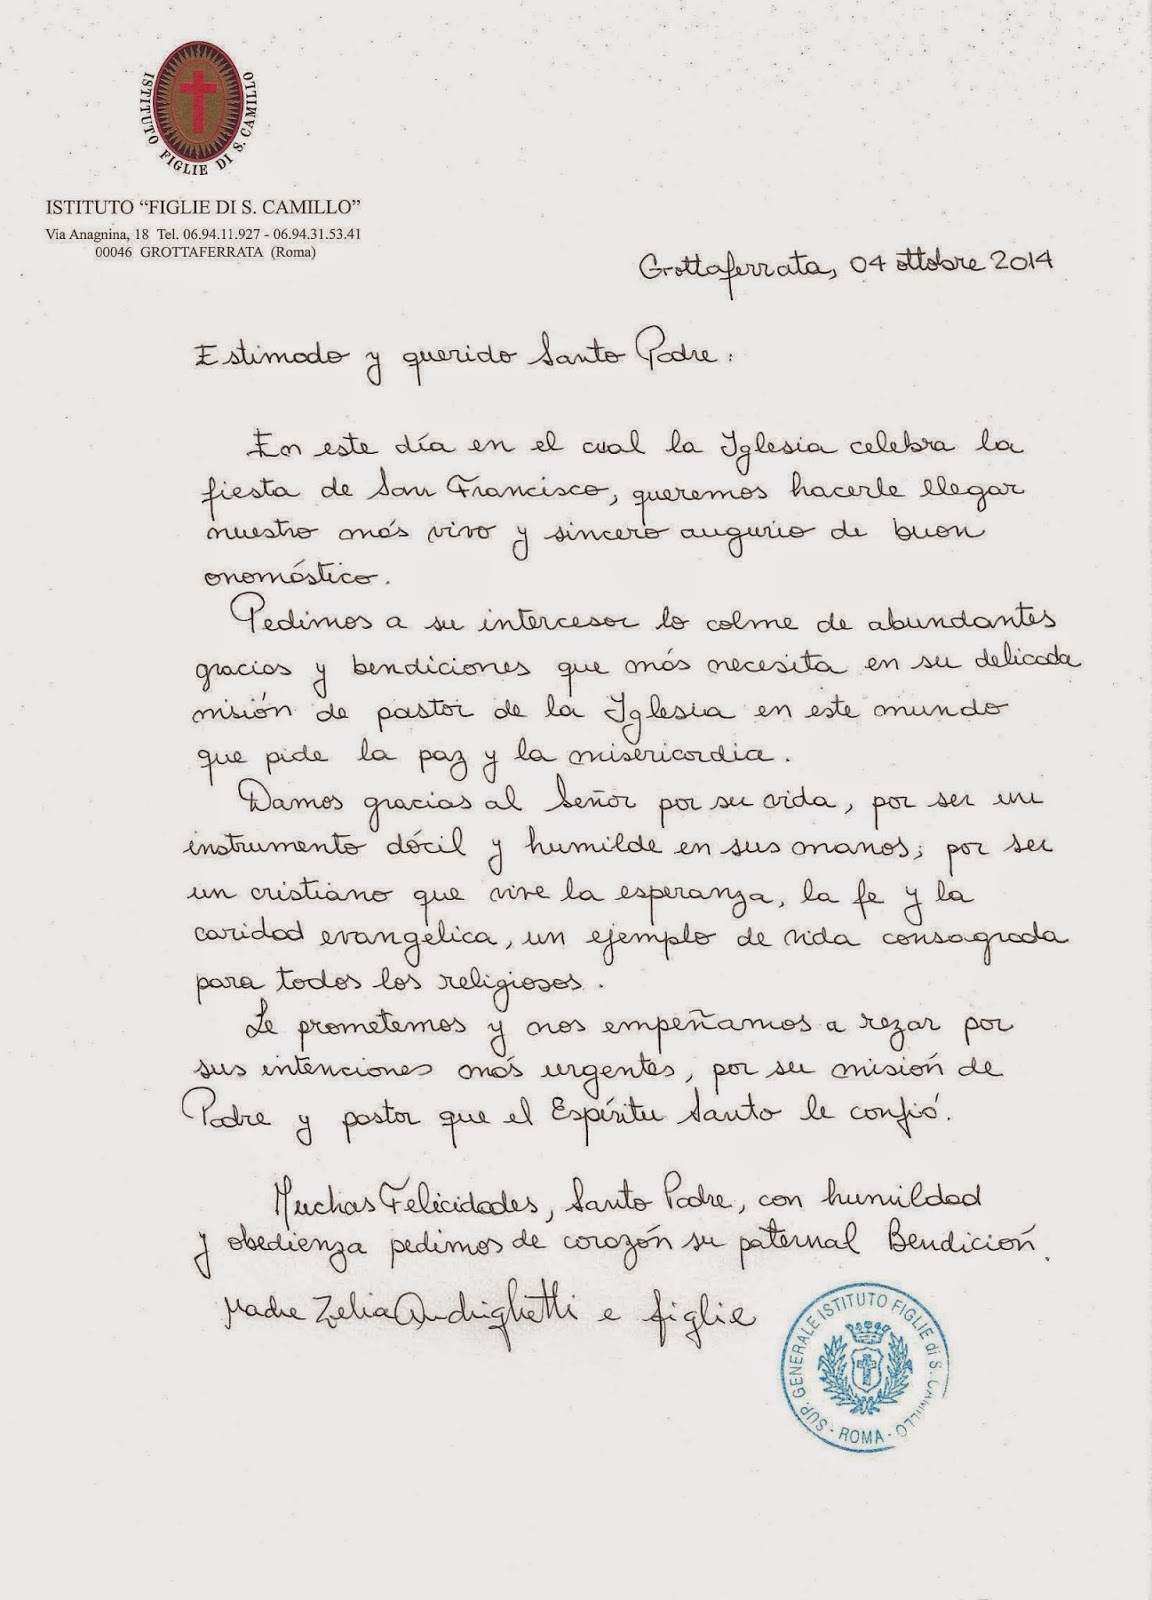 ISTITUTO FIGLIE DI S. CAMILLO
ISTITUTO “FIGLIE DI S. CAMILLO”
Via Anagnina, 18 Tel. 06.94.11.927 - 06.94.31.53.41
00046 GROTTAFERRATA (Roma)
Grottaferrata, 04 ottobre 2014
Estimado y querido Santo Padre:
En este día en el cual la Iglesia celebra la
fiesta de San Francisco, queremos hacerle llegar
nuestro más vivo y sincero augurio de buon
onomástico.
Pedimos a su intercesor lo colme de abundantes
gracias y bendiciones que más necesita en su delicada
misión de pastor de la Iglesia en este mundo
que pide la paz y la misericordia.
Damos gracias al Señor por su vida, por ser un
instrumento dócil y humilde en sus manos; por ser
un cristiano que vive la esperanza, la fe y la
caridad evangélica, un ejemplo de vida consagrada
para todos los religiosos.
Le prometemos y nos empeñamos a rezar por
sus intenciones más urgentes, por su misión de
Padre y pastor que el Espíritu Santo le confió.
Muchas Felicidades, Santo Padre, con humildad
y obedienza pedimos de corazón su paternal Bendición.
Madre Zelia Andrighetti e figlie
SUP. GENERALE ISTITUTO FIGLIE di S. CAMILLO
- ROMA -